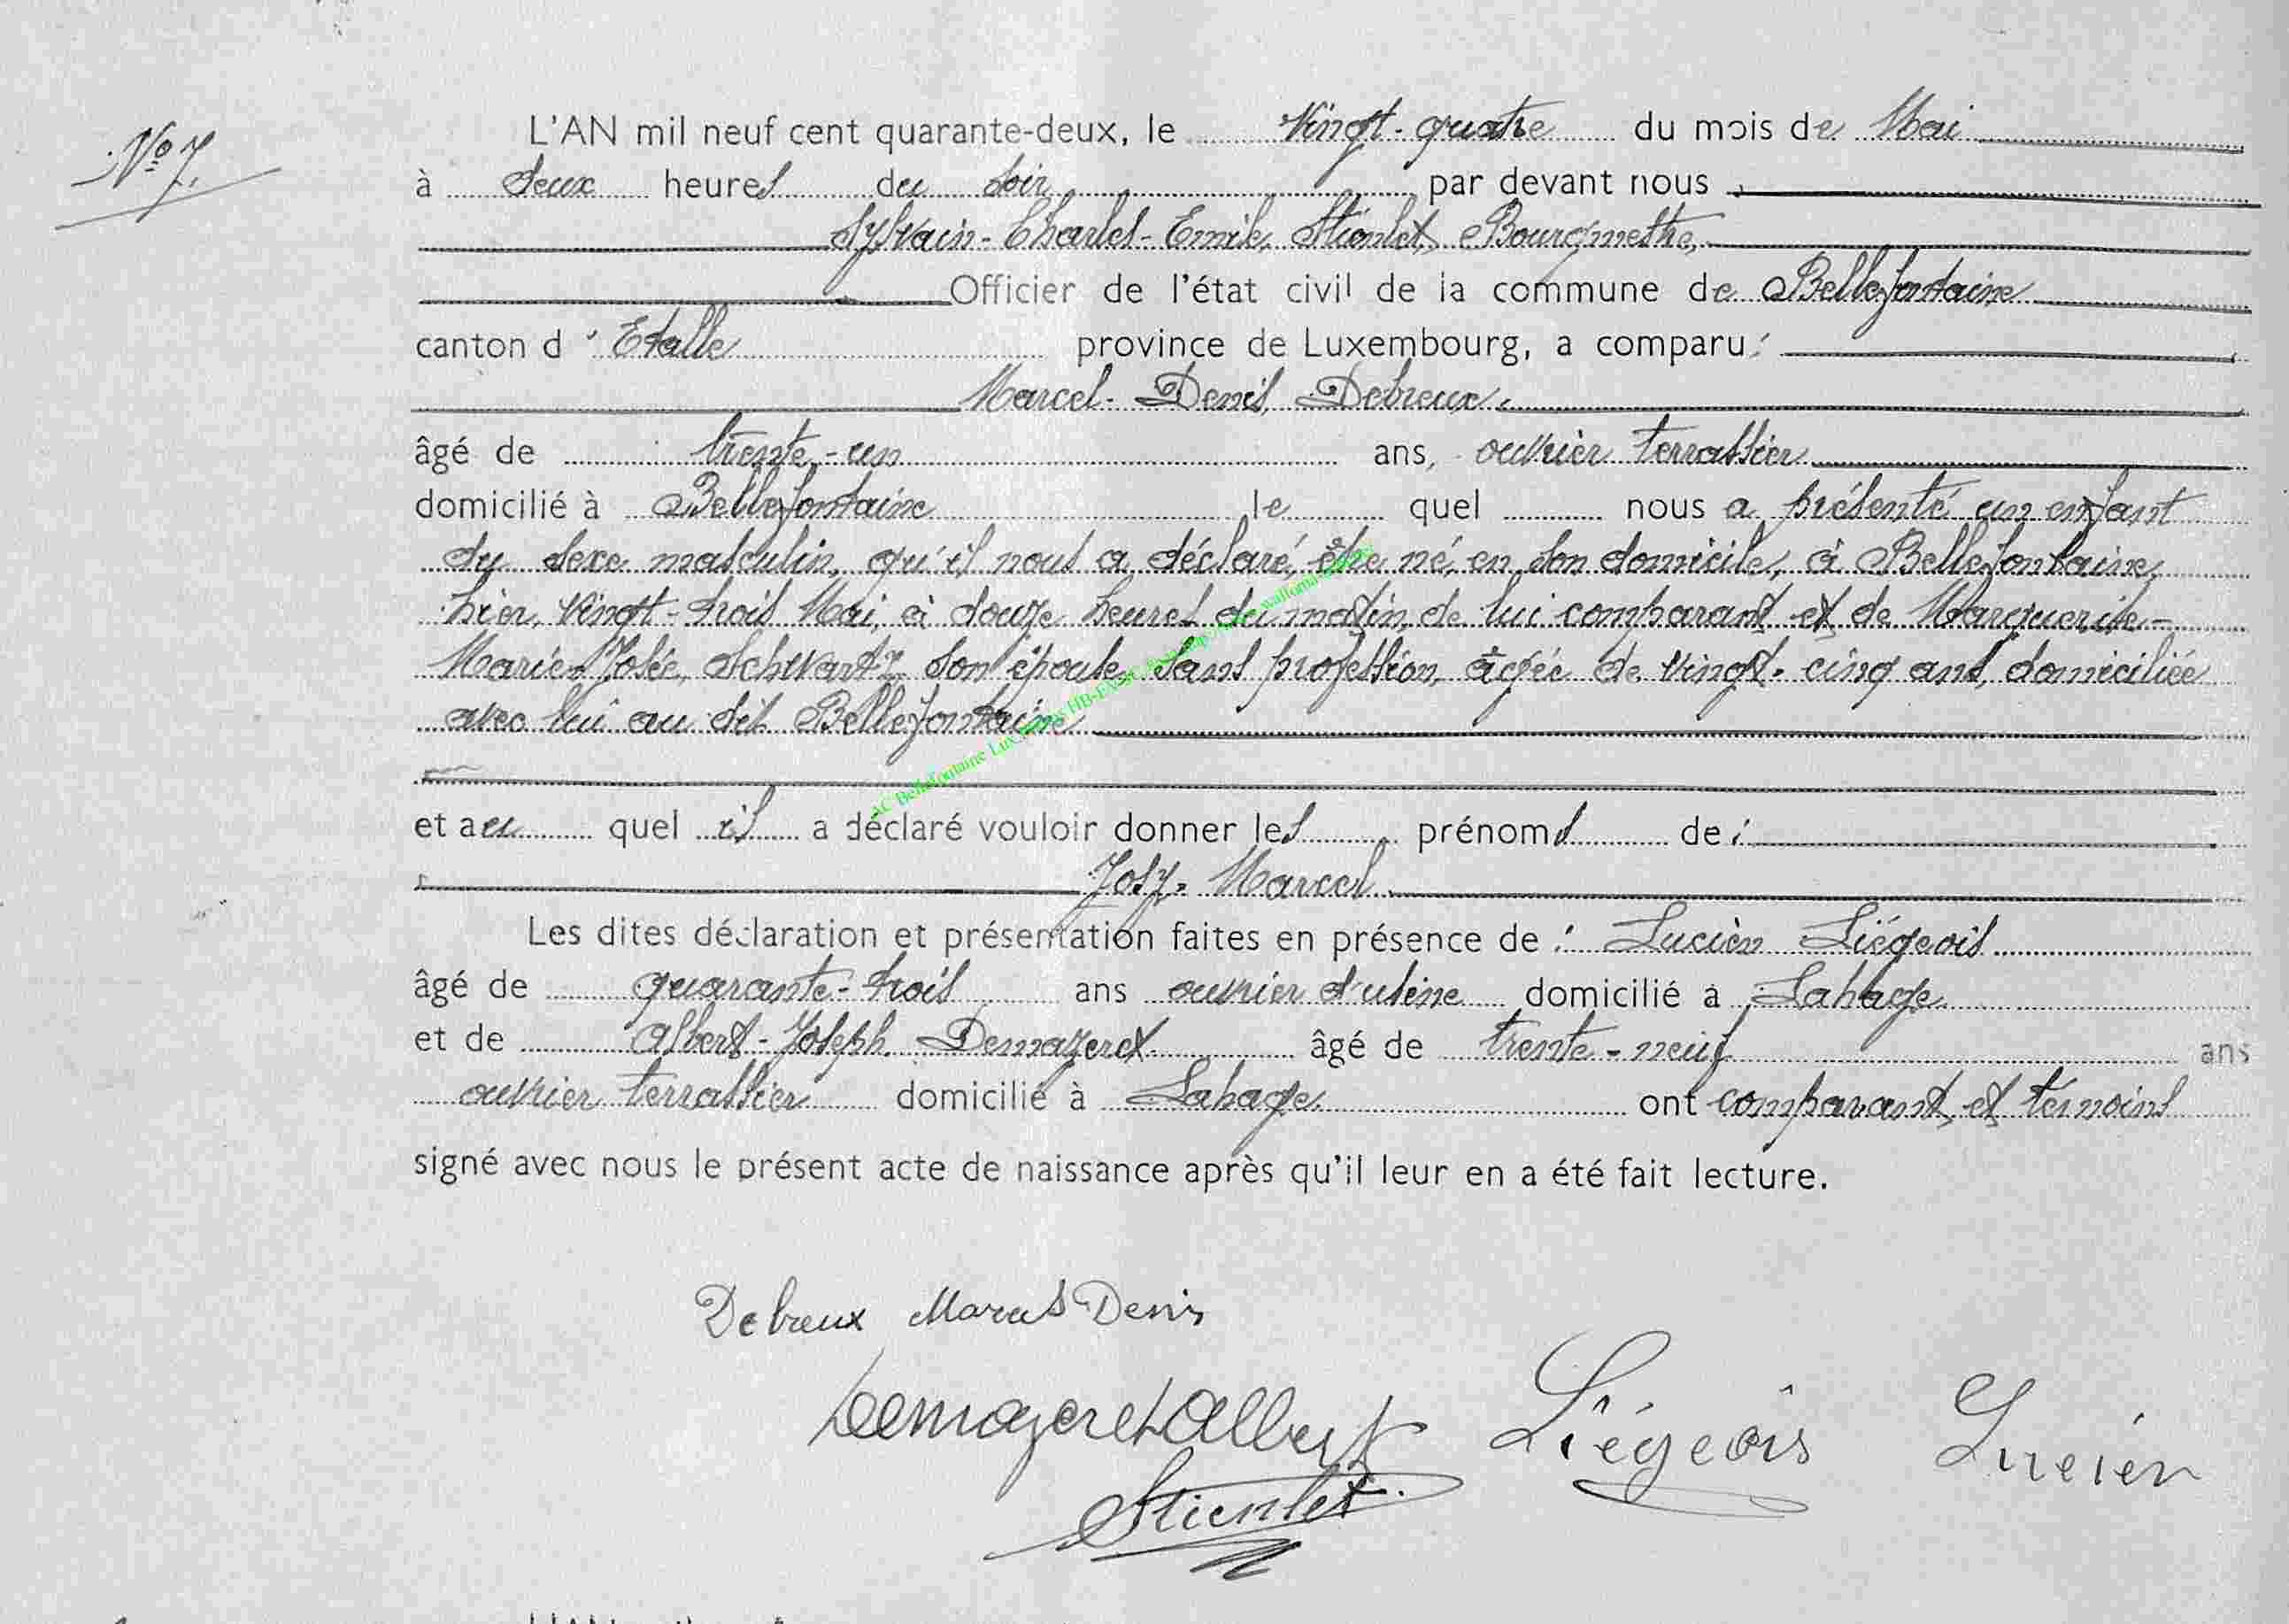 No 7.
L'AN mil neuf cent quarante-deux, le Vingt-quatre du mois de Mai
à deux heures du soir, par devant nous,
Sylvain-Charles-Emile, Stienlet, Bourgmestre,
Officier de l'état civil de la commune de Bellefontaine
canton d'Etalle province de Luxembourg, a comparu :
Marcel-Denis, Debreux,
âgé de trente-un ans, ouvrier terrassier
domicilié à Bellefontaine le quel nous a présenté un enfant
du sexe masculin, qu'il nous a déclaré, être né, en son domicile, à Bellefontaine,
hier, vingt-trois Mai, à douze heures du matin, de lui comparant et de Marguerite-
Marie-Josée, Schwartz, son épouse, sans profession, âgée de vingt-cinq ans, domiciliée
avec lui au dit Bellefontaine
AC Bellefontaine Lux
et au quel il a déclaré vouloir donner les prénoms de :
Josy-Marcel.
Les dites déclaration et présentation faites en présence de : Lucien Liégeois
âgé de quarante-trois ans ouvrier d'usine domicilié à Lahage
et de Albert-Joseph, Demazeret âgé de trente-neuf ans
ouvrier terrassier domicilié à Lahage, ont comparant et témoins
signé avec nous le présent acte de naissance après qu'il leur en a été fait lecture.
Debreux Marcel Denis
Demazeret Albert Liégeois Lucien
Stienlet